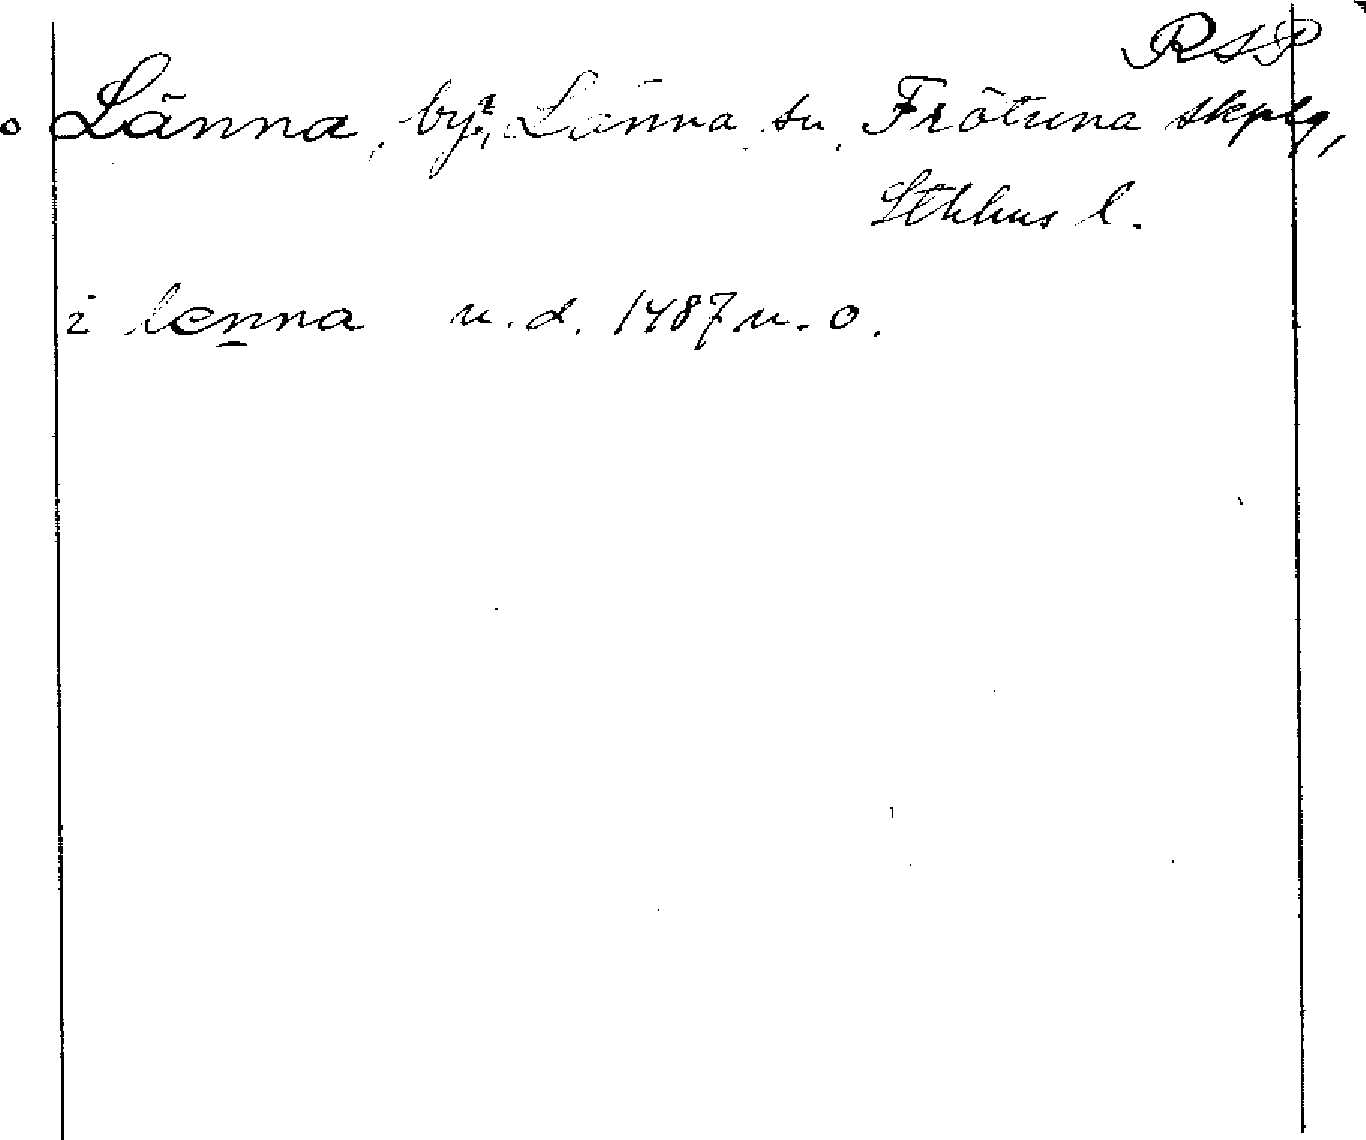 RSP
Länna, by?, Länna sn, Frötuna skplg,
Sthlms l.
i lenna u. d. 1487 u. o.